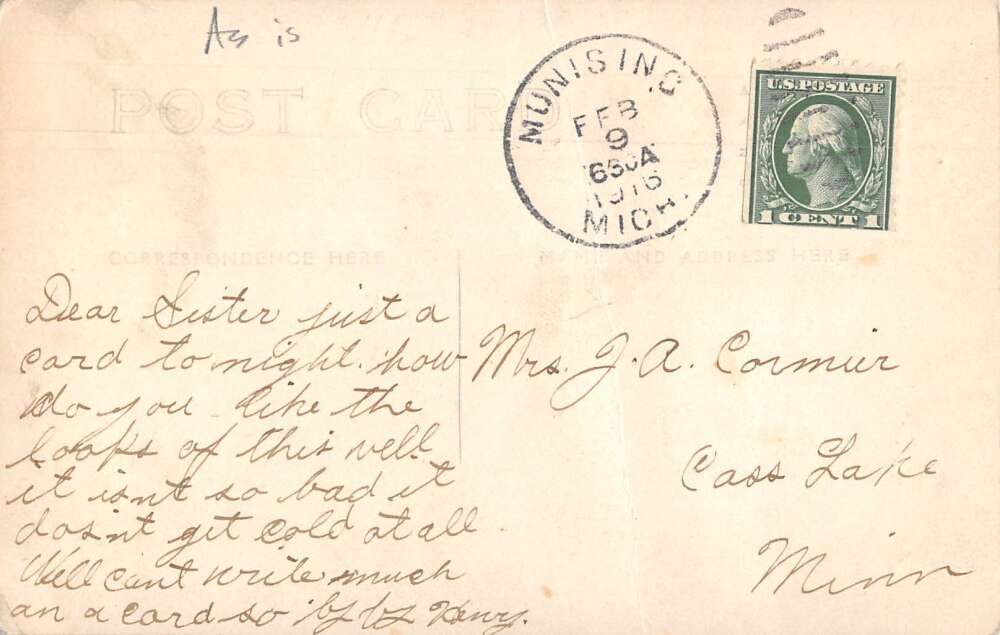 As is
POST CARD
MUNISING
FEB
9
630A
1916
MICH.
U.S. POSTAGE
1 CENT 1
CORRESPONDENCE HERE
NAME AND ADDRESS HERE
Dear Sister just a
card to night. how
do you like the
looks of this well
it isnt so bad it
dosnt get cold at all.
Well cant write much
an a card so by by Henry.
Mrs. J. A. Cormier
Cass Lake
Minn